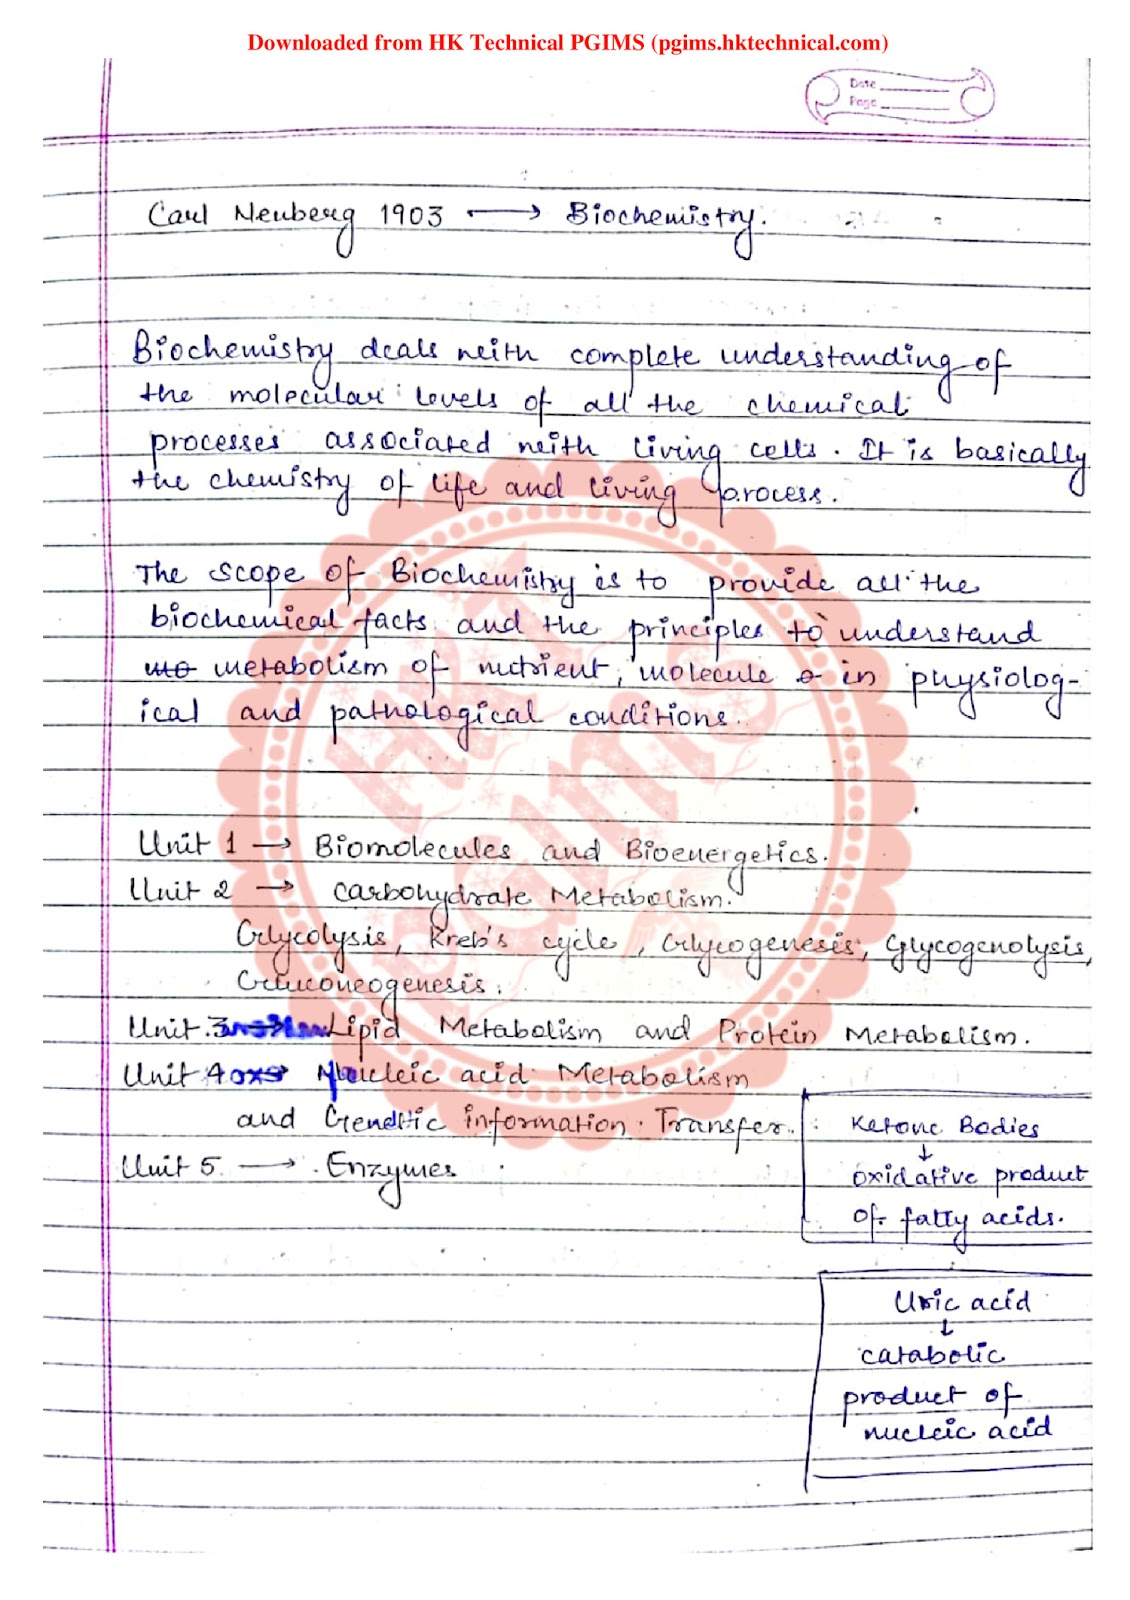 Downloaded from HK Technical PGIMS (pgims.hktechnical.com)
Date
Page
Carl Neuberg 1903 → Biochemistry.
Biochemistry deals with complete understanding of
the molecular levels of all the chemical
processes associated with living cells. It is basically
the chemistry of life and living process.
The scope of Biochemistry is to provide all the
biochemical facts and the principles to understand
metabolism of nutrient, molecule in physiolog-
ical and pathological conditions.
Unit 1 → Biomolecules and Bioenergetics.
Unit 2 → Carbohydrate Metabolism.
Glycolysis, Kreb's cycle, Glycogenesis, Glycogenolysis,
Gluconeogenesis.
Unit 3 Lipid Metabolism and Protein Metabolism.
Unit 4 → Nucleic acid Metabolism
and Genetic information Transfer.
Unit 5 → Enzymes
Ketone Bodies
↓
oxidative product
of fatty acids.
Uric acid
↓
catabolic
product of
nucleic acid